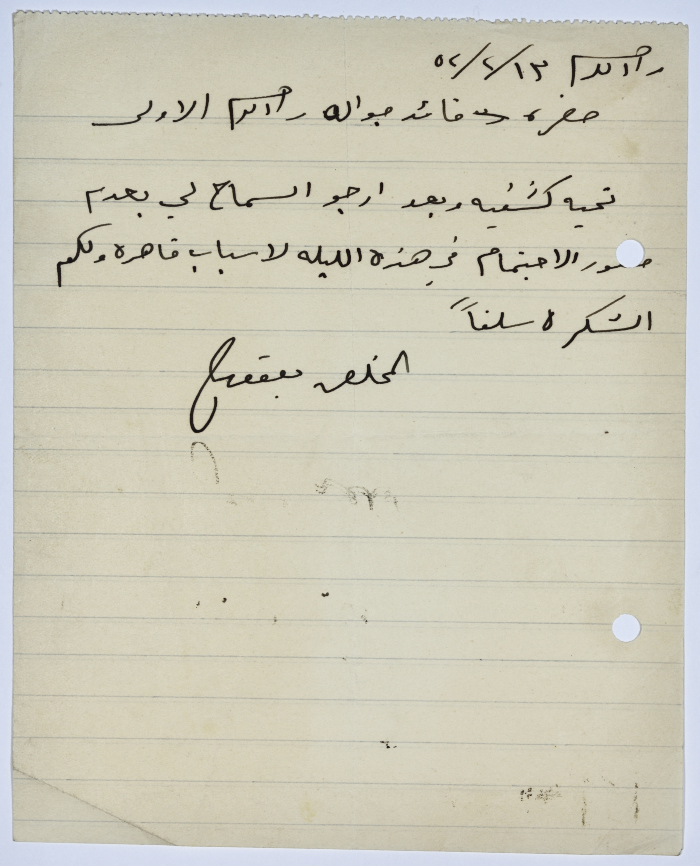 رام الله ١٣/٢/٥٢
حضرة قائد جواله رام الله الاولى
تحيه كشفيه وبعد ارجو السماح لي بعدم
حضور الاجتماع في هذه الليله لاسباب قاهرة ولكم
الشكر سلفاً
المخلص